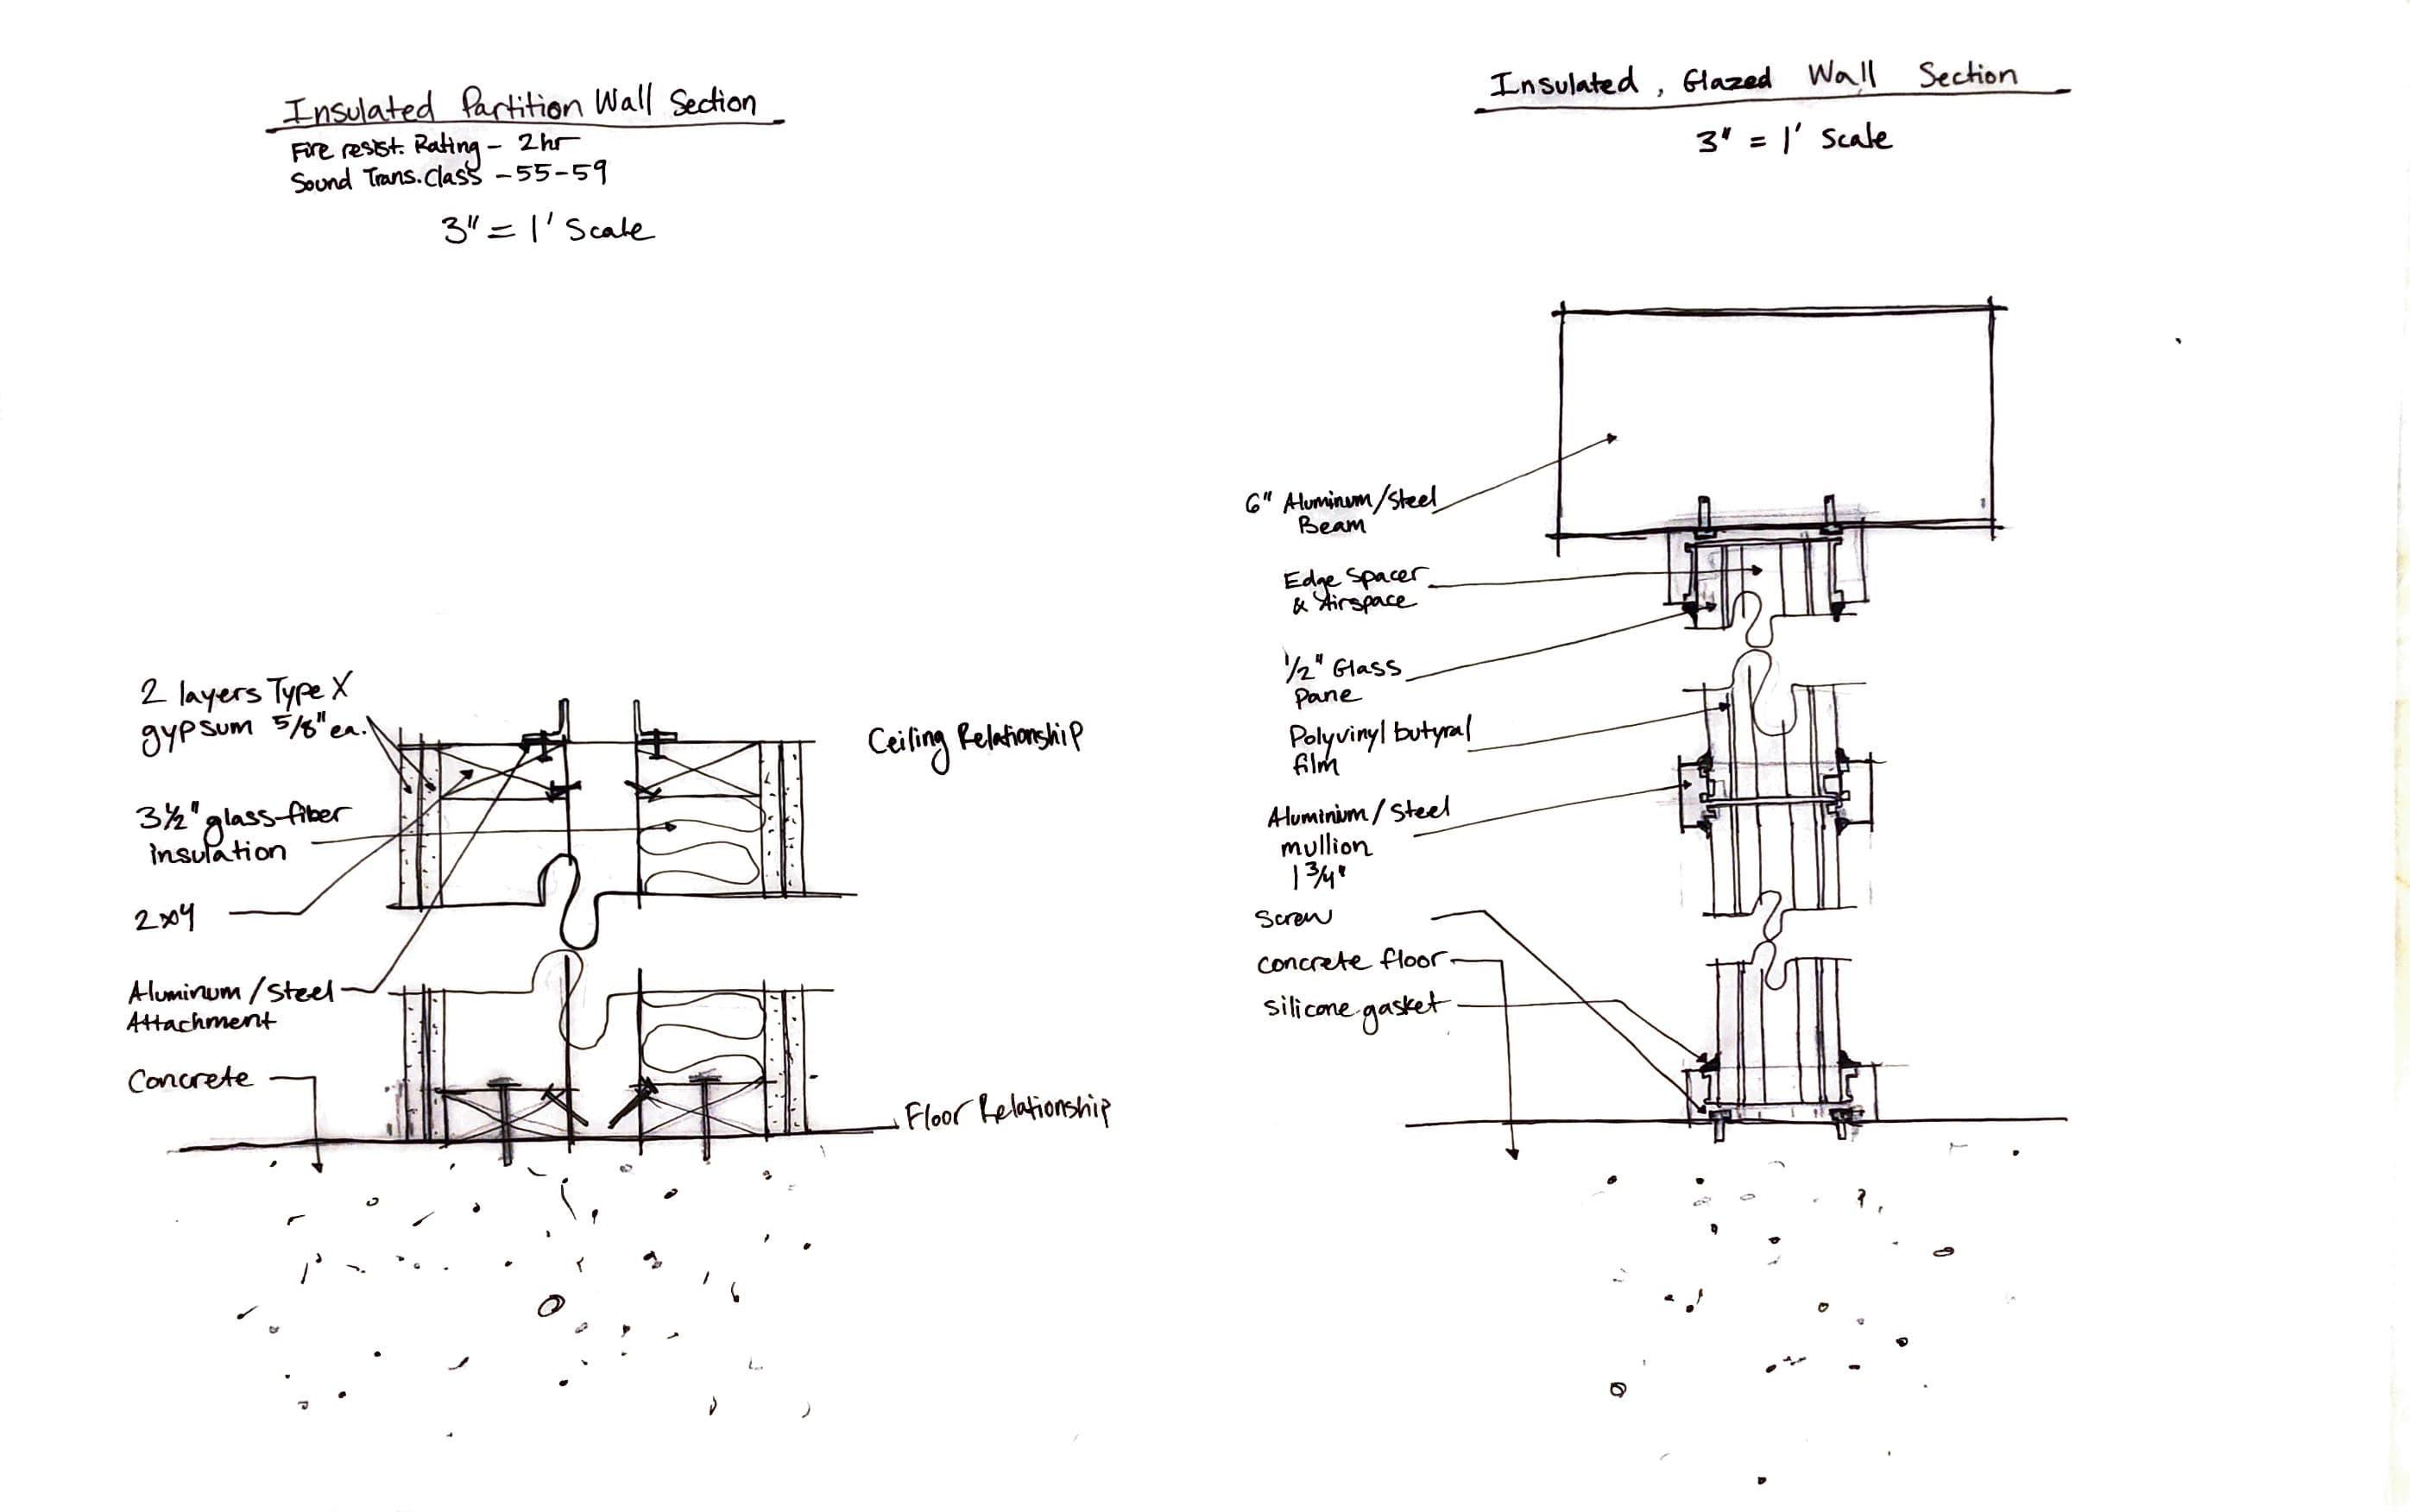 Insulated Partition Wall Section
Fire resist. Rating - 2hr
Sound Trans. Class - 55-59
3" = 1' Scale
2 layers Type X
gypsum 5/8" ea.
3 1/2" glass-fiber
insulation
2x4
Aluminum/Steel
Attachment
Concrete
Ceiling Relationship
Floor Relationship
Insulated, Glazed Wall Section
3" = 1' Scale
6" Aluminum/Steel
Beam
Edge Spacer
& Airspace
1/2" Glass
Pane
Polyvinyl butyral
film
Aluminium/Steel
mullion
1 3/4"
Screw
concrete floor
silicone gasket